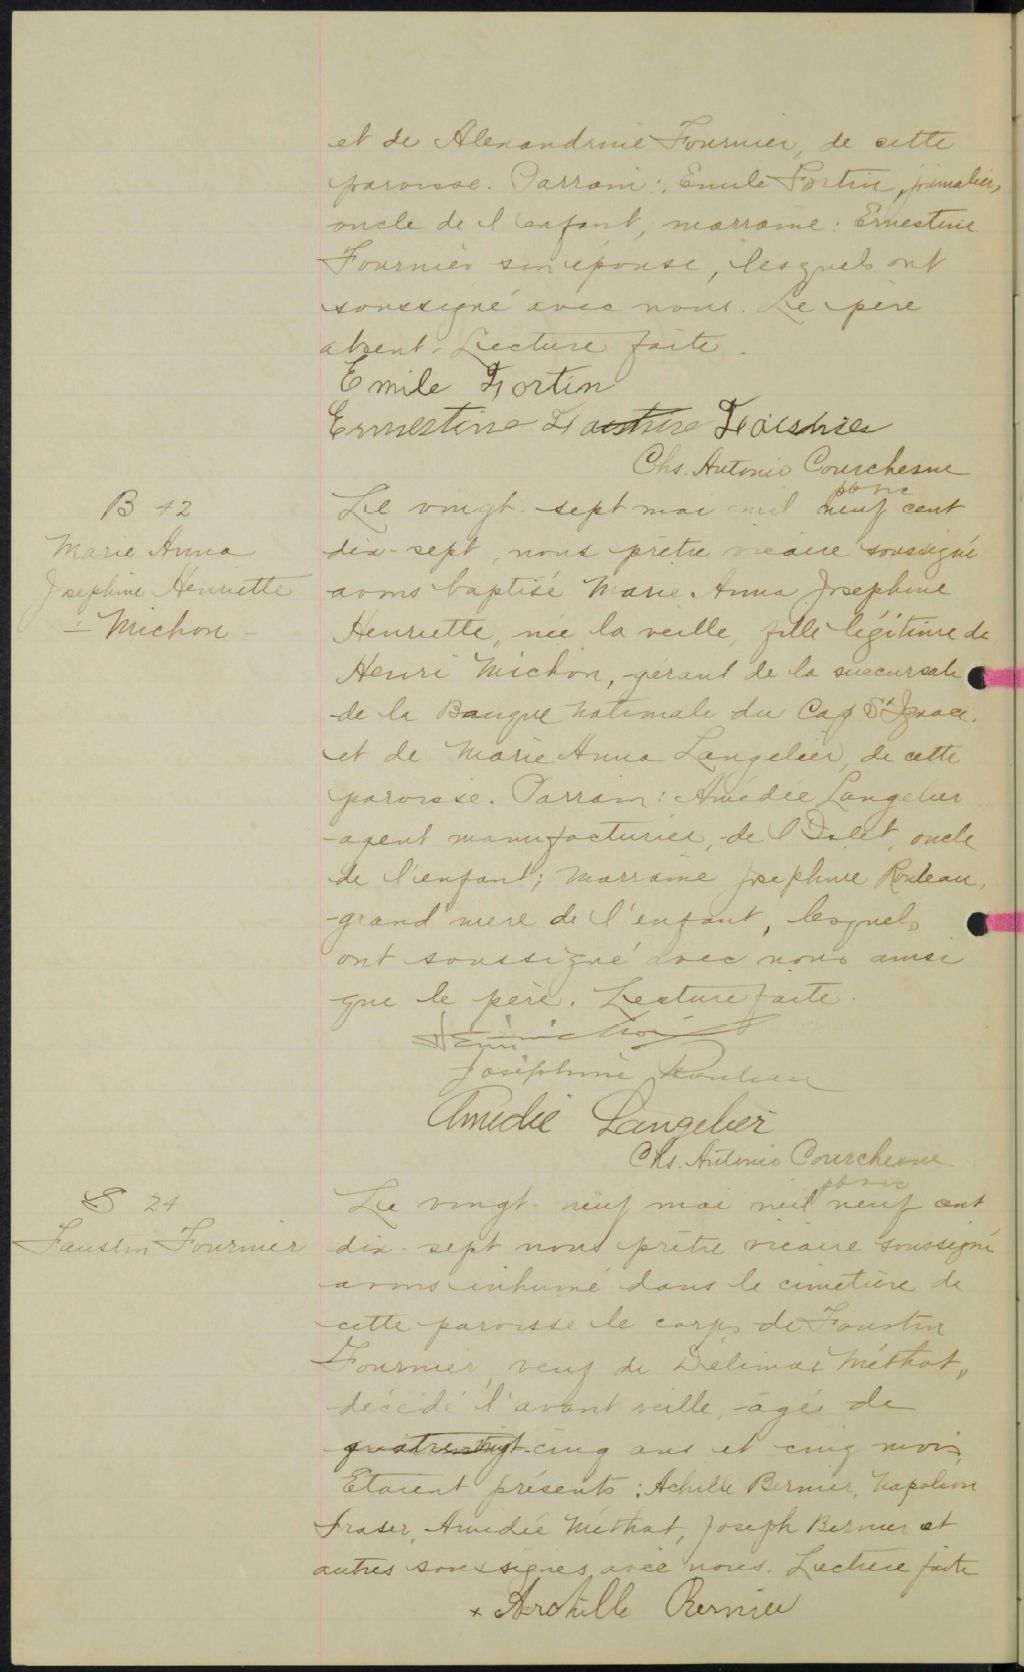 et de Alexandrine Fournier, de cette
paroisse. Parrain: Emile Fortin, journalier,
oncle de l'enfant, marraine: Ernestine
Fournier son épouse, lesquels ont
soussigné avec nous. Le père
absent. Lecture faite.
Emile Fortin
Ernestine Fournier
Chs. Antonio Courchesne
ptre vic
B 42
Marie Anna
Josephine Henriette
- Michon -
Le vingt-sept mai mil neuf cent
dix-sept, nous prêtre vicaire soussigné
avons baptisé Marie Anna Josephine
Henriette, née la veille, fille légitime de
Henri Michon, gérant de la succursale
de la Banque Nationale du Cap St Ignace.
et de Marie Anna Langelier, de cette
paroisse. Parrain: Amédée Langelier
agent manufacturier, de l'Islet, oncle
de l'enfant; Marraine Josephine Rouleau,
grand'mere de l'enfant, lesquels
ont soussigné avec nous ainsi
que le père. Lecture faite.
Henri Michon
Joséphine Rouleau
Amédée Langelier
Chs. Antonio Courchesne
ptre vic
S 24
Faustin Fournier
Le vingt-neuf mai mil neuf cent
dix-sept nous prêtre vicaire soussigné
avons inhumé dans le cimetière de
cette paroisse le corps de Faustin
Fournier, veuf de Délima Méthot,
décédé l'avant veille, âgé de
quatre-vingt-cinq ans et cinq mois,
Etaient présents: Achille Bernier, Napoléon
Fraser, Amédée Méthot, Joseph Bernier et
autres soussignés avec nous. Lecture faite
x Archille Bernier